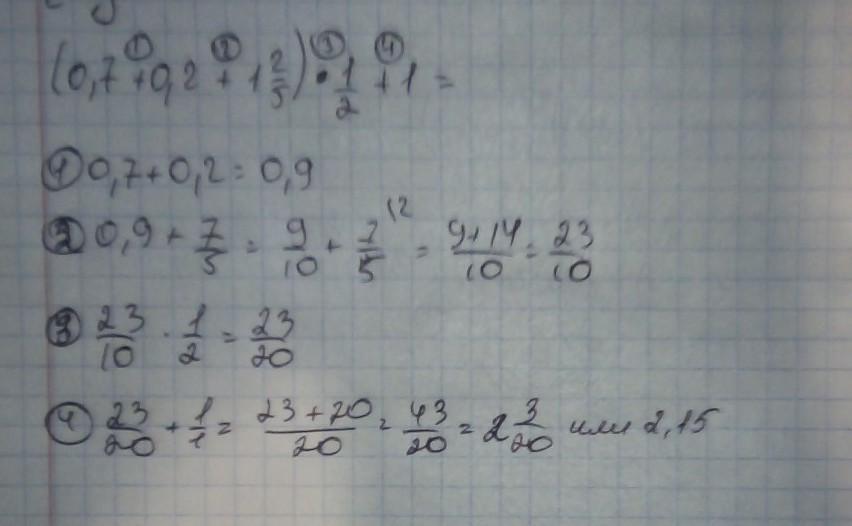 (0,7 +① 0,2 +② 1 2/5) ·③ 1/2 +④ 1 =
① 0,7 + 0,2 = 0,9
② 0,9 + 7/5 = 9/10 + 7/5 (2 = 9+14/10 = 23/10
③ 23/10 · 1/2 = 23/20
④ 23/20 + 1/1 = 23+20/20 = 43/20 = 2 3/20 или 2,15